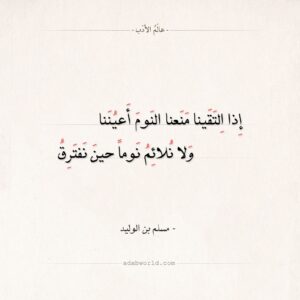 - عالم الأدب -
إِذا اِلتَقَينا مَنَعنا النَومَ أَعيُنَنا
وَلا نُلائِمُ نَوماً حينَ نَفتَرِقُ
- مسلم بن الوليد
adabworld.com